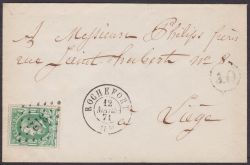 A Messieurs Philips frères
rue Saint-hubert n° 8
à
Liège
ROCHEFORT
12
71
10